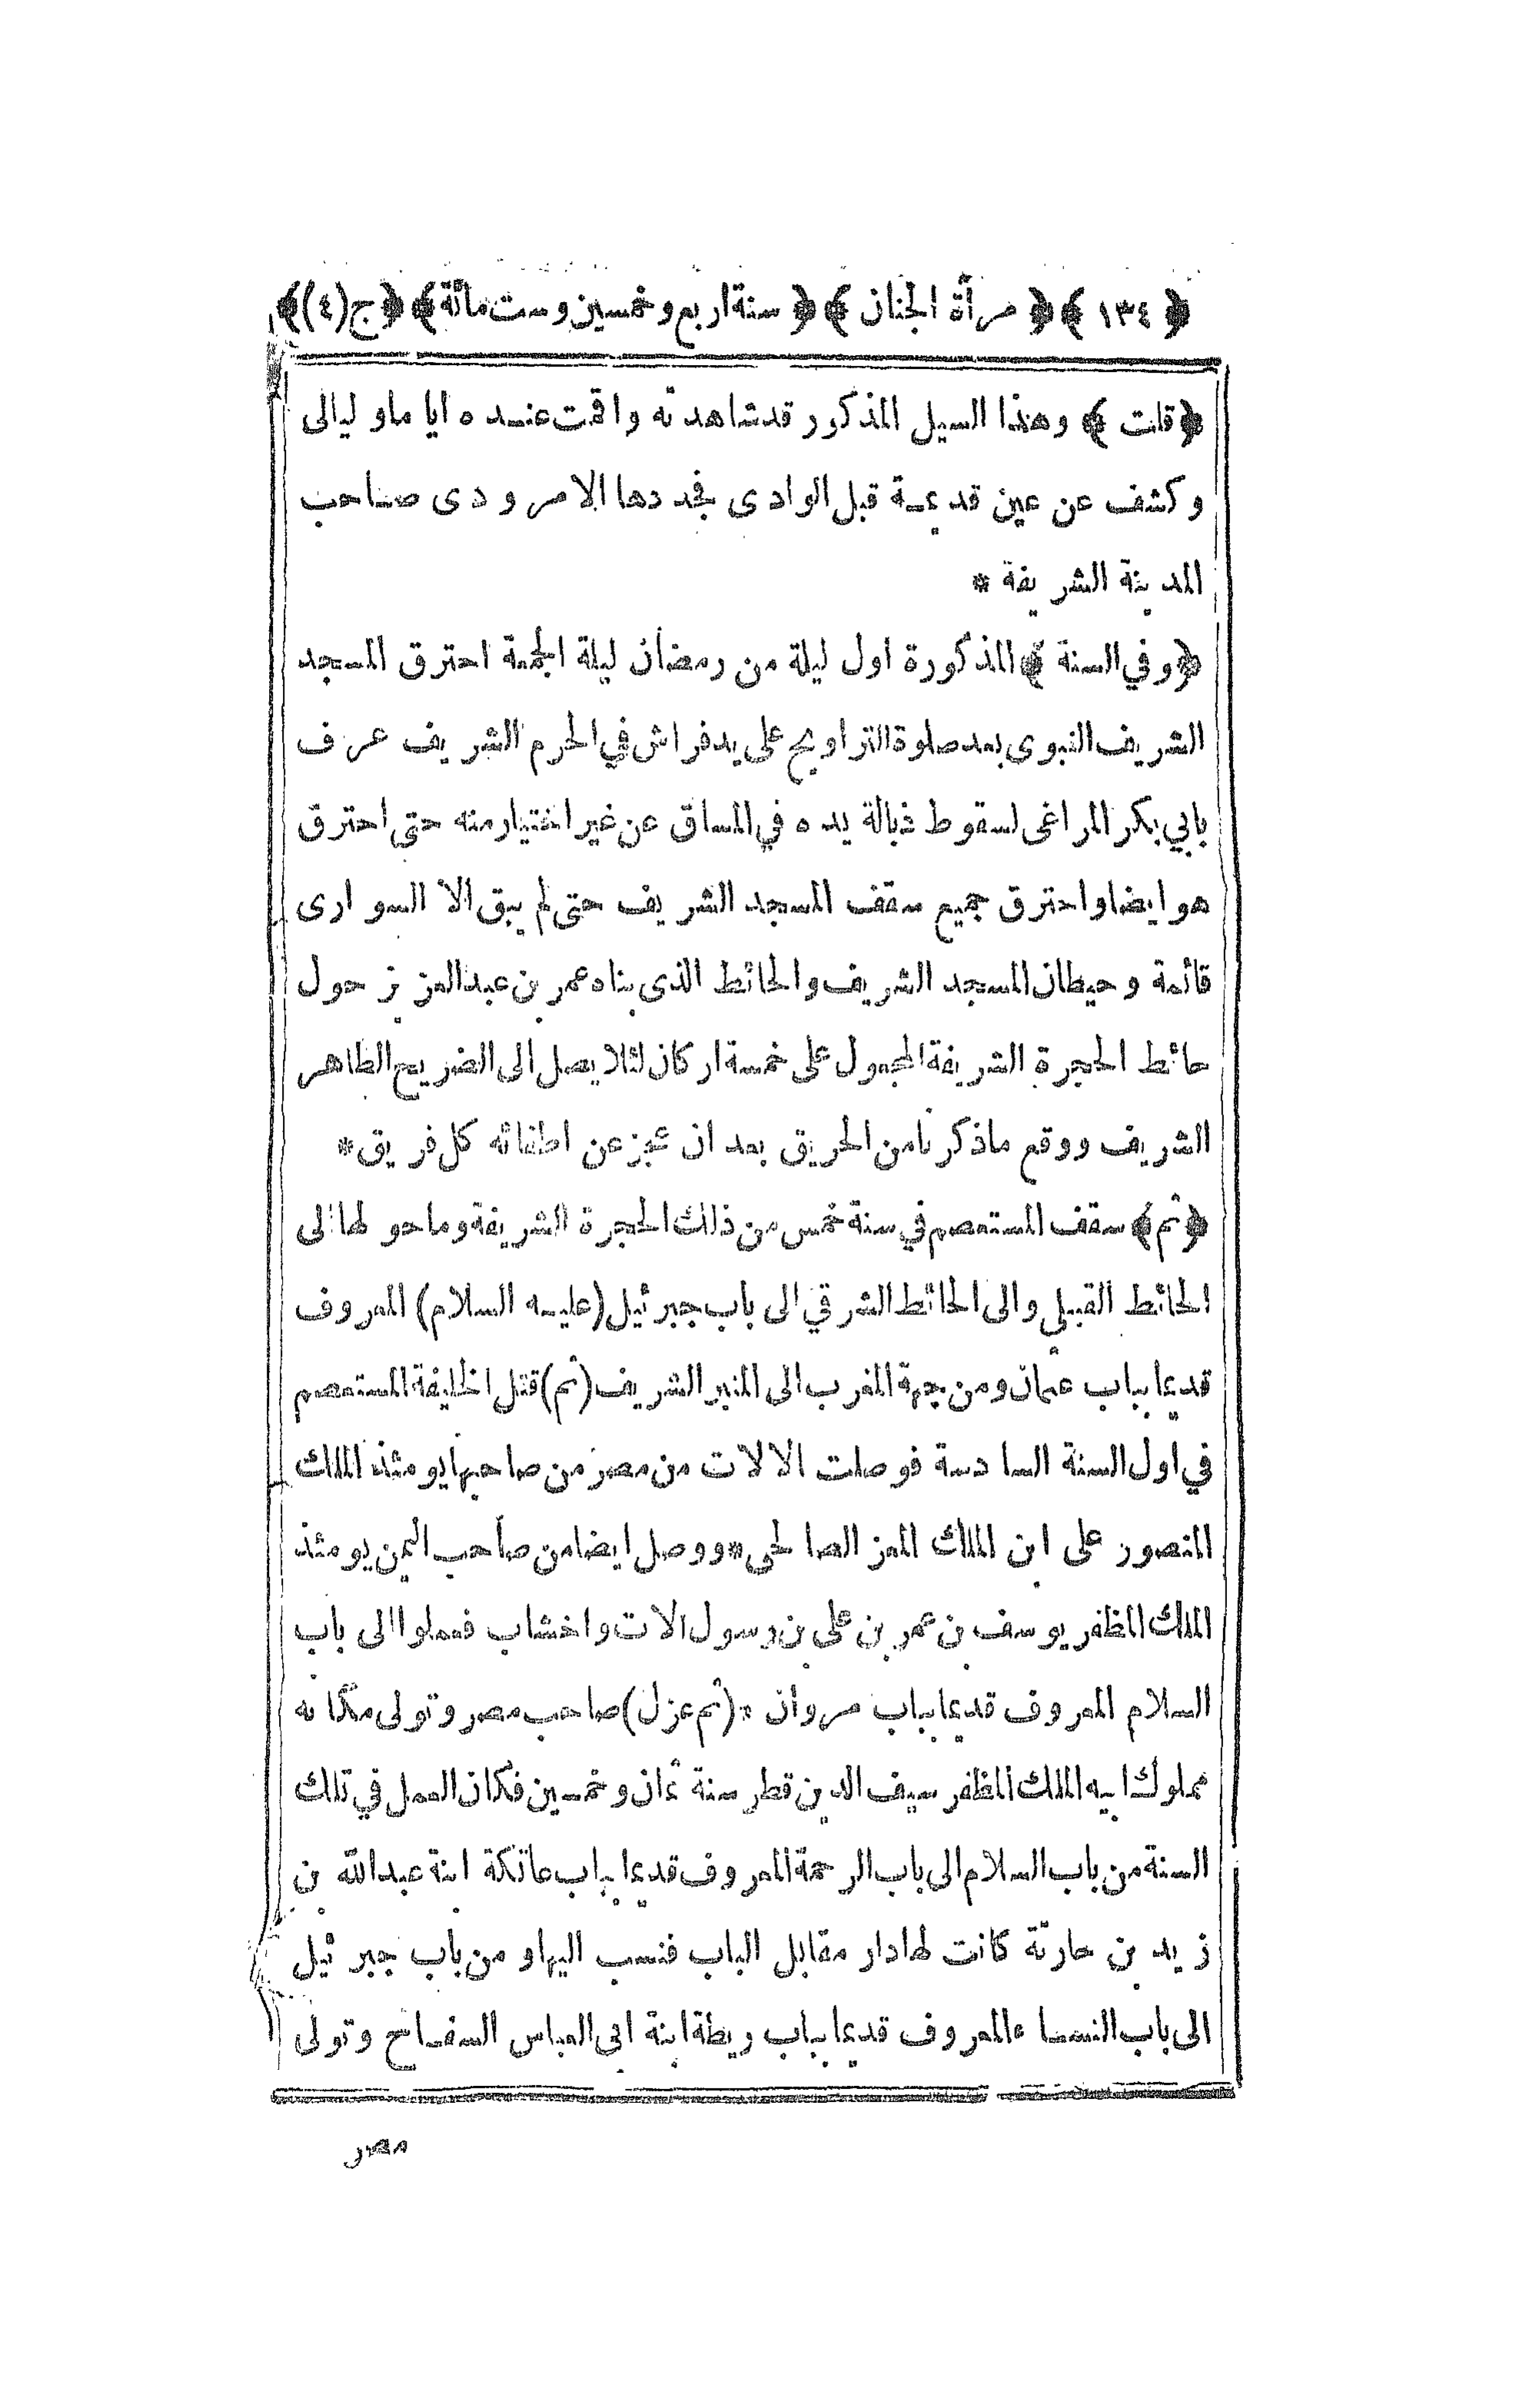 ﴿ ١٣٤ ﴾ ﴿ مرآة الجنان ﴾ ﴿ سنة اربع وخمسين وست مائة ﴾ ﴿ ج (٤) ﴾
﴿ قلت ﴾ وهذا السيل المذكور قد شاهدته واقمت عنده اياما وليالى
وكشف عن عين قديمة قبل الوادى فجددها الامر ودى صاحب
المدينة الشريفة *
﴿ وفي السنة ﴾ المذكورة اول ليلة من رمضان ليلة الجمعة احترق المسجد
الشريف النبوى بعد صلوة التراويح على يد فراش في الحرم الشريف عرف
بابي بكر المراغى لسقوط ذبالة يده في المساق عن غير اختيار منه حتى احترق
هو ايضا واحترق جميع سقف المسجد الشريف حتى لم يبق الا السوارى
قائمة وحيطان المسجد الشريف والحائط الذى بناه عمر بن عبد العزيز حول
حائط الحجرة الشريفة المجعول على خمسة اركان لئلا يصل الى الضريح الطاهر
الشريف ووقع ما ذكرنا من الحريق بعد ان عجز عن اطفائه كل فريق *
﴿ ثم ﴾ سقف المستعصم في سنة خمس من ذلك الحجرة الشريفة وما حولها الى
الحائط القبلي والى الحائط الشرقي الى باب جبرئيل (عليه السلام) المعروف
قديما بباب عثمان ومن جهة المغرب الى المنبر الشريف (ثم) قتل الخليفة المستعصم
في اول السنة السادسة فوصلت الالات من مصر من صاحبها يومئذ الملك
المنصور على ابن الملك المعز الصالحى * ووصل ايضا من صاحب اليمن يومئذ
الملك المظفر يوسف بن عمر بن على بن رسول الات واخشاب فعملوا الى باب
السلام المعروف قديما بباب مروان * (ثم عزل) صاحب مصر وتولى مكانه
مملوك ابيه الملك المظفر سيف الدين قطز سنة ثمان وخمسين فكان العمل في تلك
السنة من باب السلام الى باب الرحمة المعروف قديما بباب عاتكة ابنة عبدالله بن
زيد بن حارثة كانت لها دار مقابل الباب فنسب اليها ومن باب جبرئيل
الى باب النساء المعروف قديما بباب ريطة ابنة ابى العباس السفاح وتولى
مصر